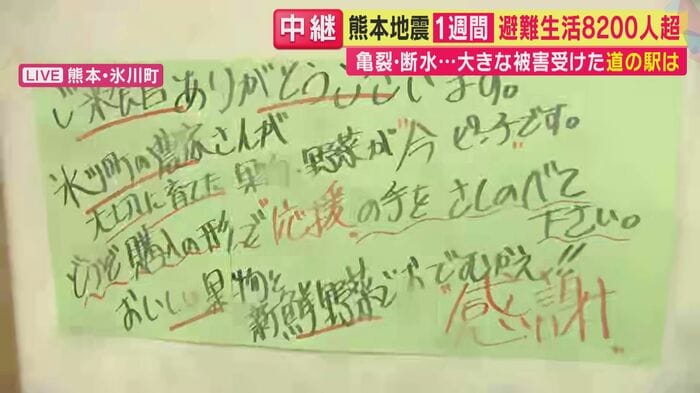 中継 熊本地震 1週間 避難生活8200人超
亀裂・断水…大きな被害受けた道の駅は
LIVE 熊本・氷川町
ご来店ありがとうございます。
氷川町の農家さんが
大切に育てた果物、野菜が"今ピンチ"です。
どうぞ購入の形で"応援"の手をさしのべて
下さい。
おいしい果物と
新鮮野菜でおでむかえ!!
"感謝"